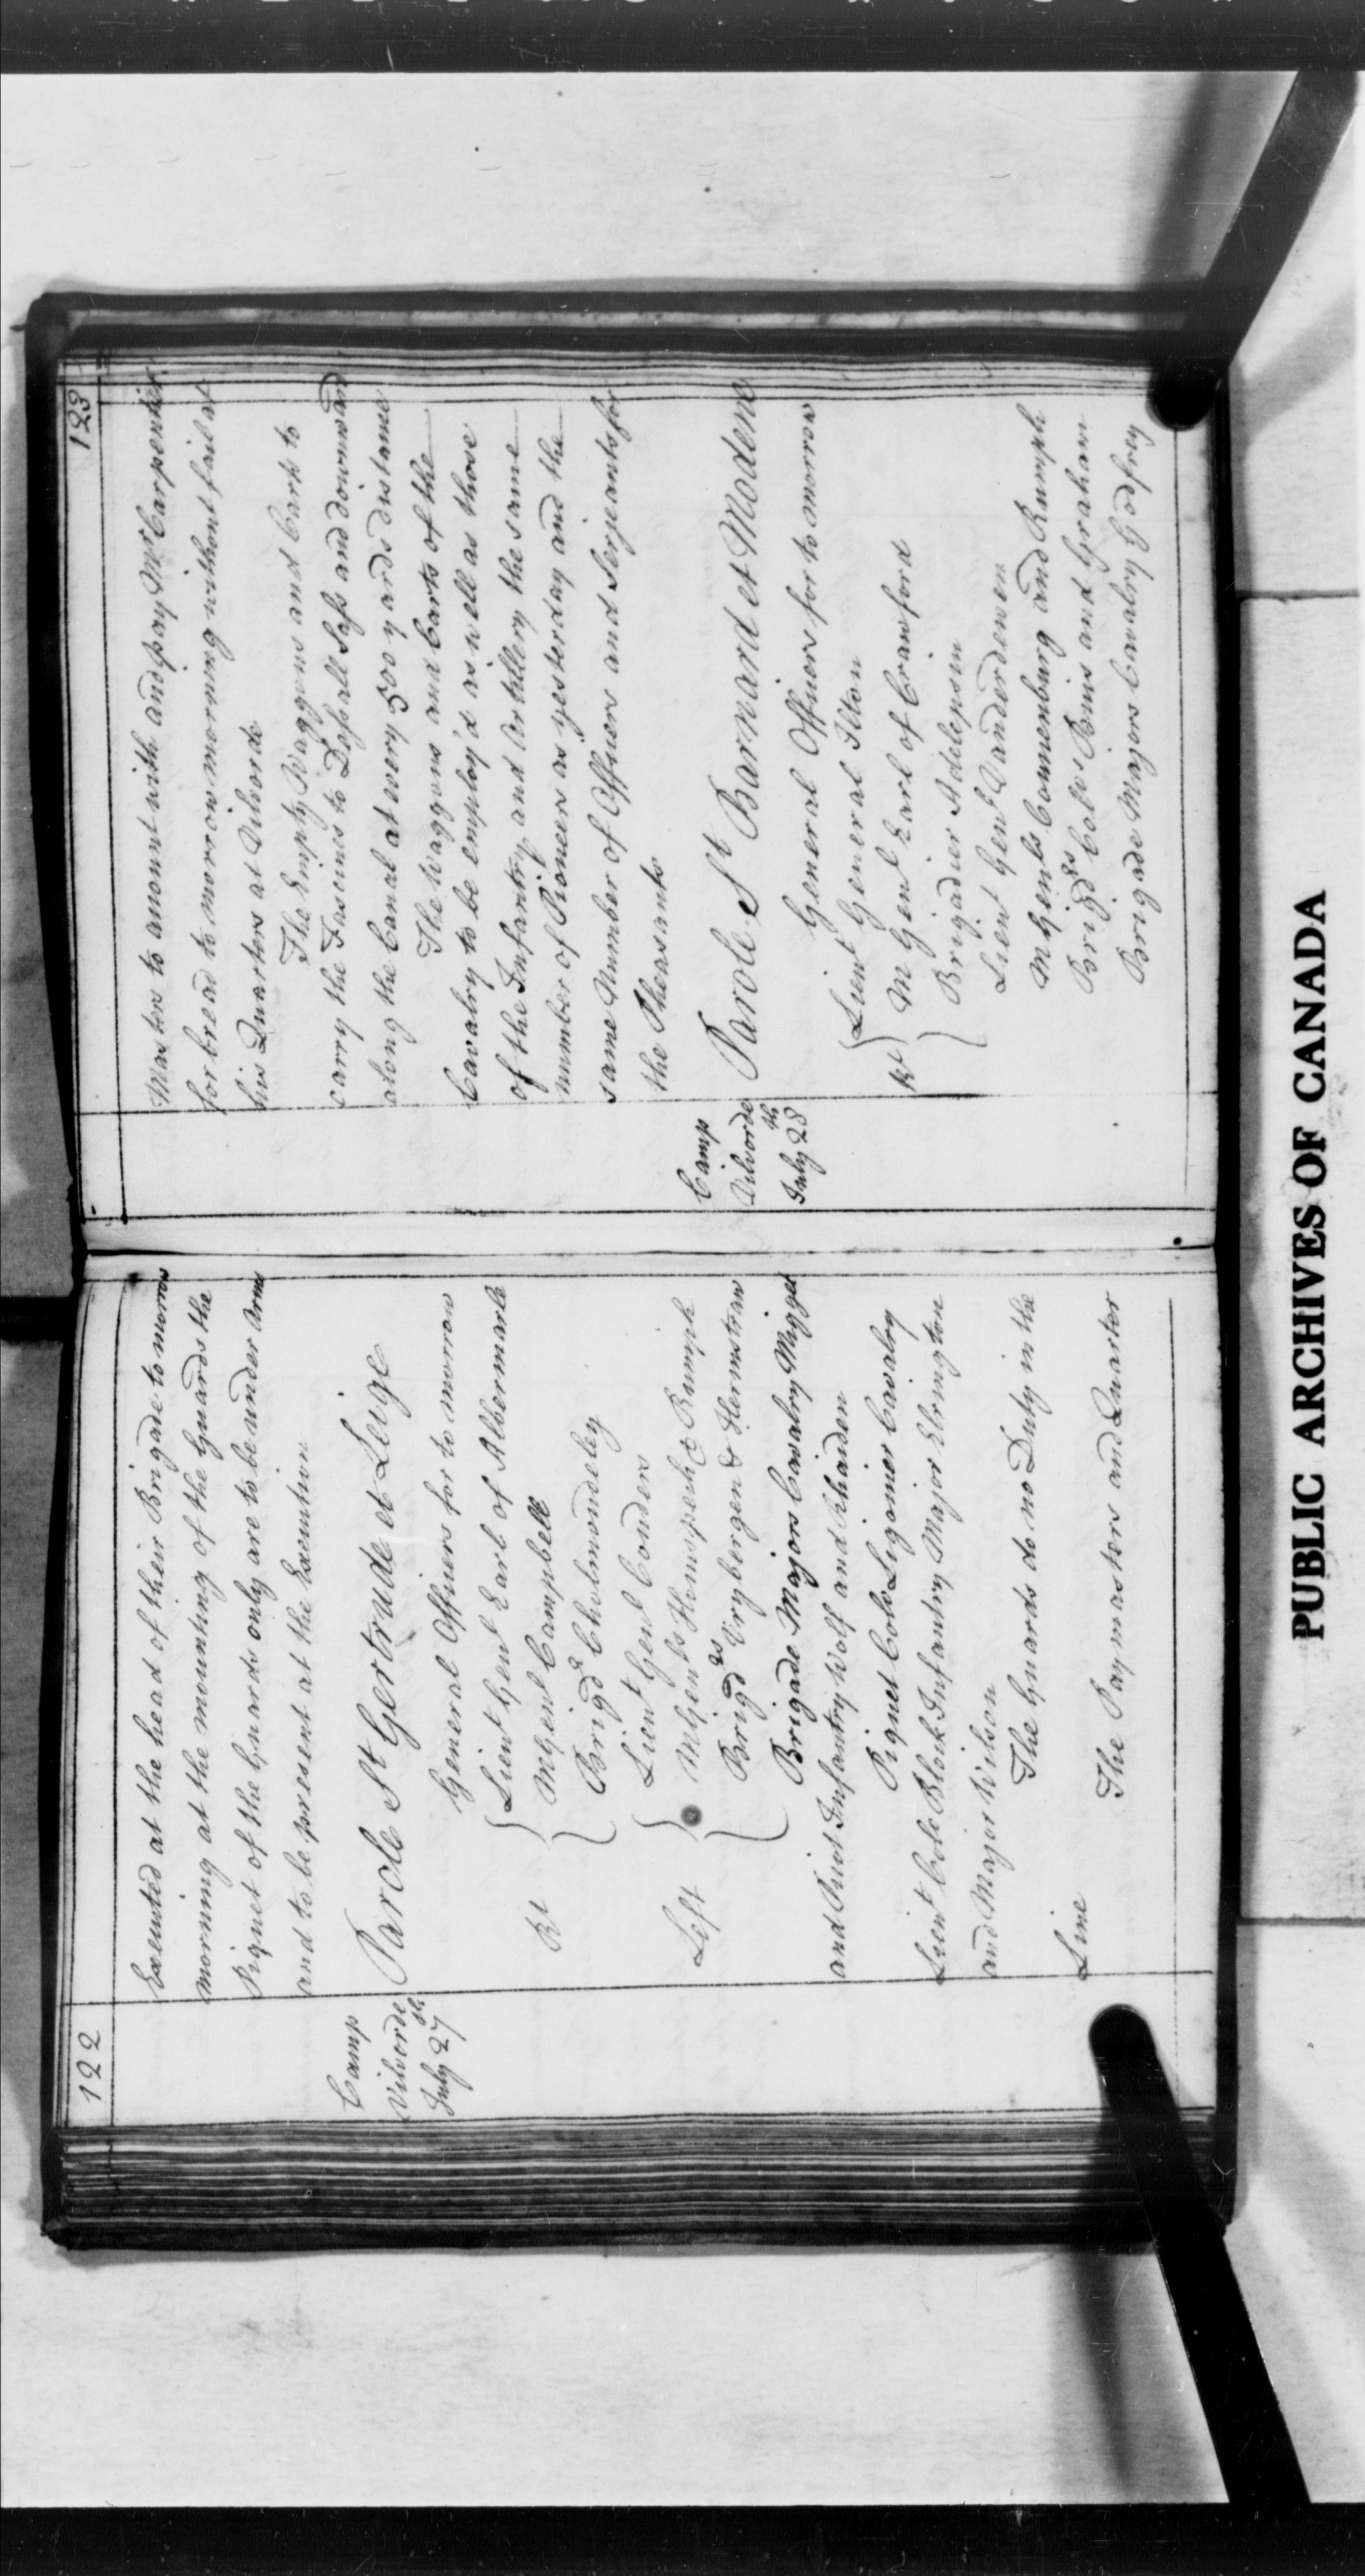 122
Executed at the head of their Brigade to morrow
morning at the mounting of the Guards the
Piquet of the Guards only are to be under Arms
and to be present at the Execution
Camp
Vilvorde
July 27th
Parole St Gertrude et Leige
General Officers for to morrow
Rt
Lieut Genl Earl of Albermarle
M Genl Campbell
Brigdr Cholmondeley
Left
Lieut Genl Conders
M Genls Homspech & Rumph
Brigdrs Vrybergen & Hermstran
Brigade Majors Cavalry Migget
and Puiot Infantry Wolf and Rhaiden
Piquet Colo Ligonier Cavalry
Lieut Colo Block Infantry Major Elrington
and Major Wilson
The Guards do no Duty in the
Line
The Paymasters and Quarter
123
Masters to amount with and pay Mr Carpenter
for bread to morrow morning without fail at
his Quarters at Vilvorde
The Empty Waggons and Carts to
carry the Fascines to all and down
along the Canal at every 500 yards distance
The Waggons and Carts of the
Cavalry to be employ'd as well as those
of the Infantry and Artillery the same
number of Pioneers as yesterday and the
same Number of Officers and Serjeants for
the Pheasants
Camp
Vilvorde
July 28th
Parole St Barnard et Modene
General Officers for to morrow
Rt
Lieut General Ilton
M Genl Earl of Crawford
Brigadier Adelepsen
Lieut Genl Vanderduen
M Genls Coumenburg and Rumph
Brigdrs Colos Buis and Graham
Brigade Majors Cavalry Godfrey
PUBLIC ARCHIVES OF CANADA